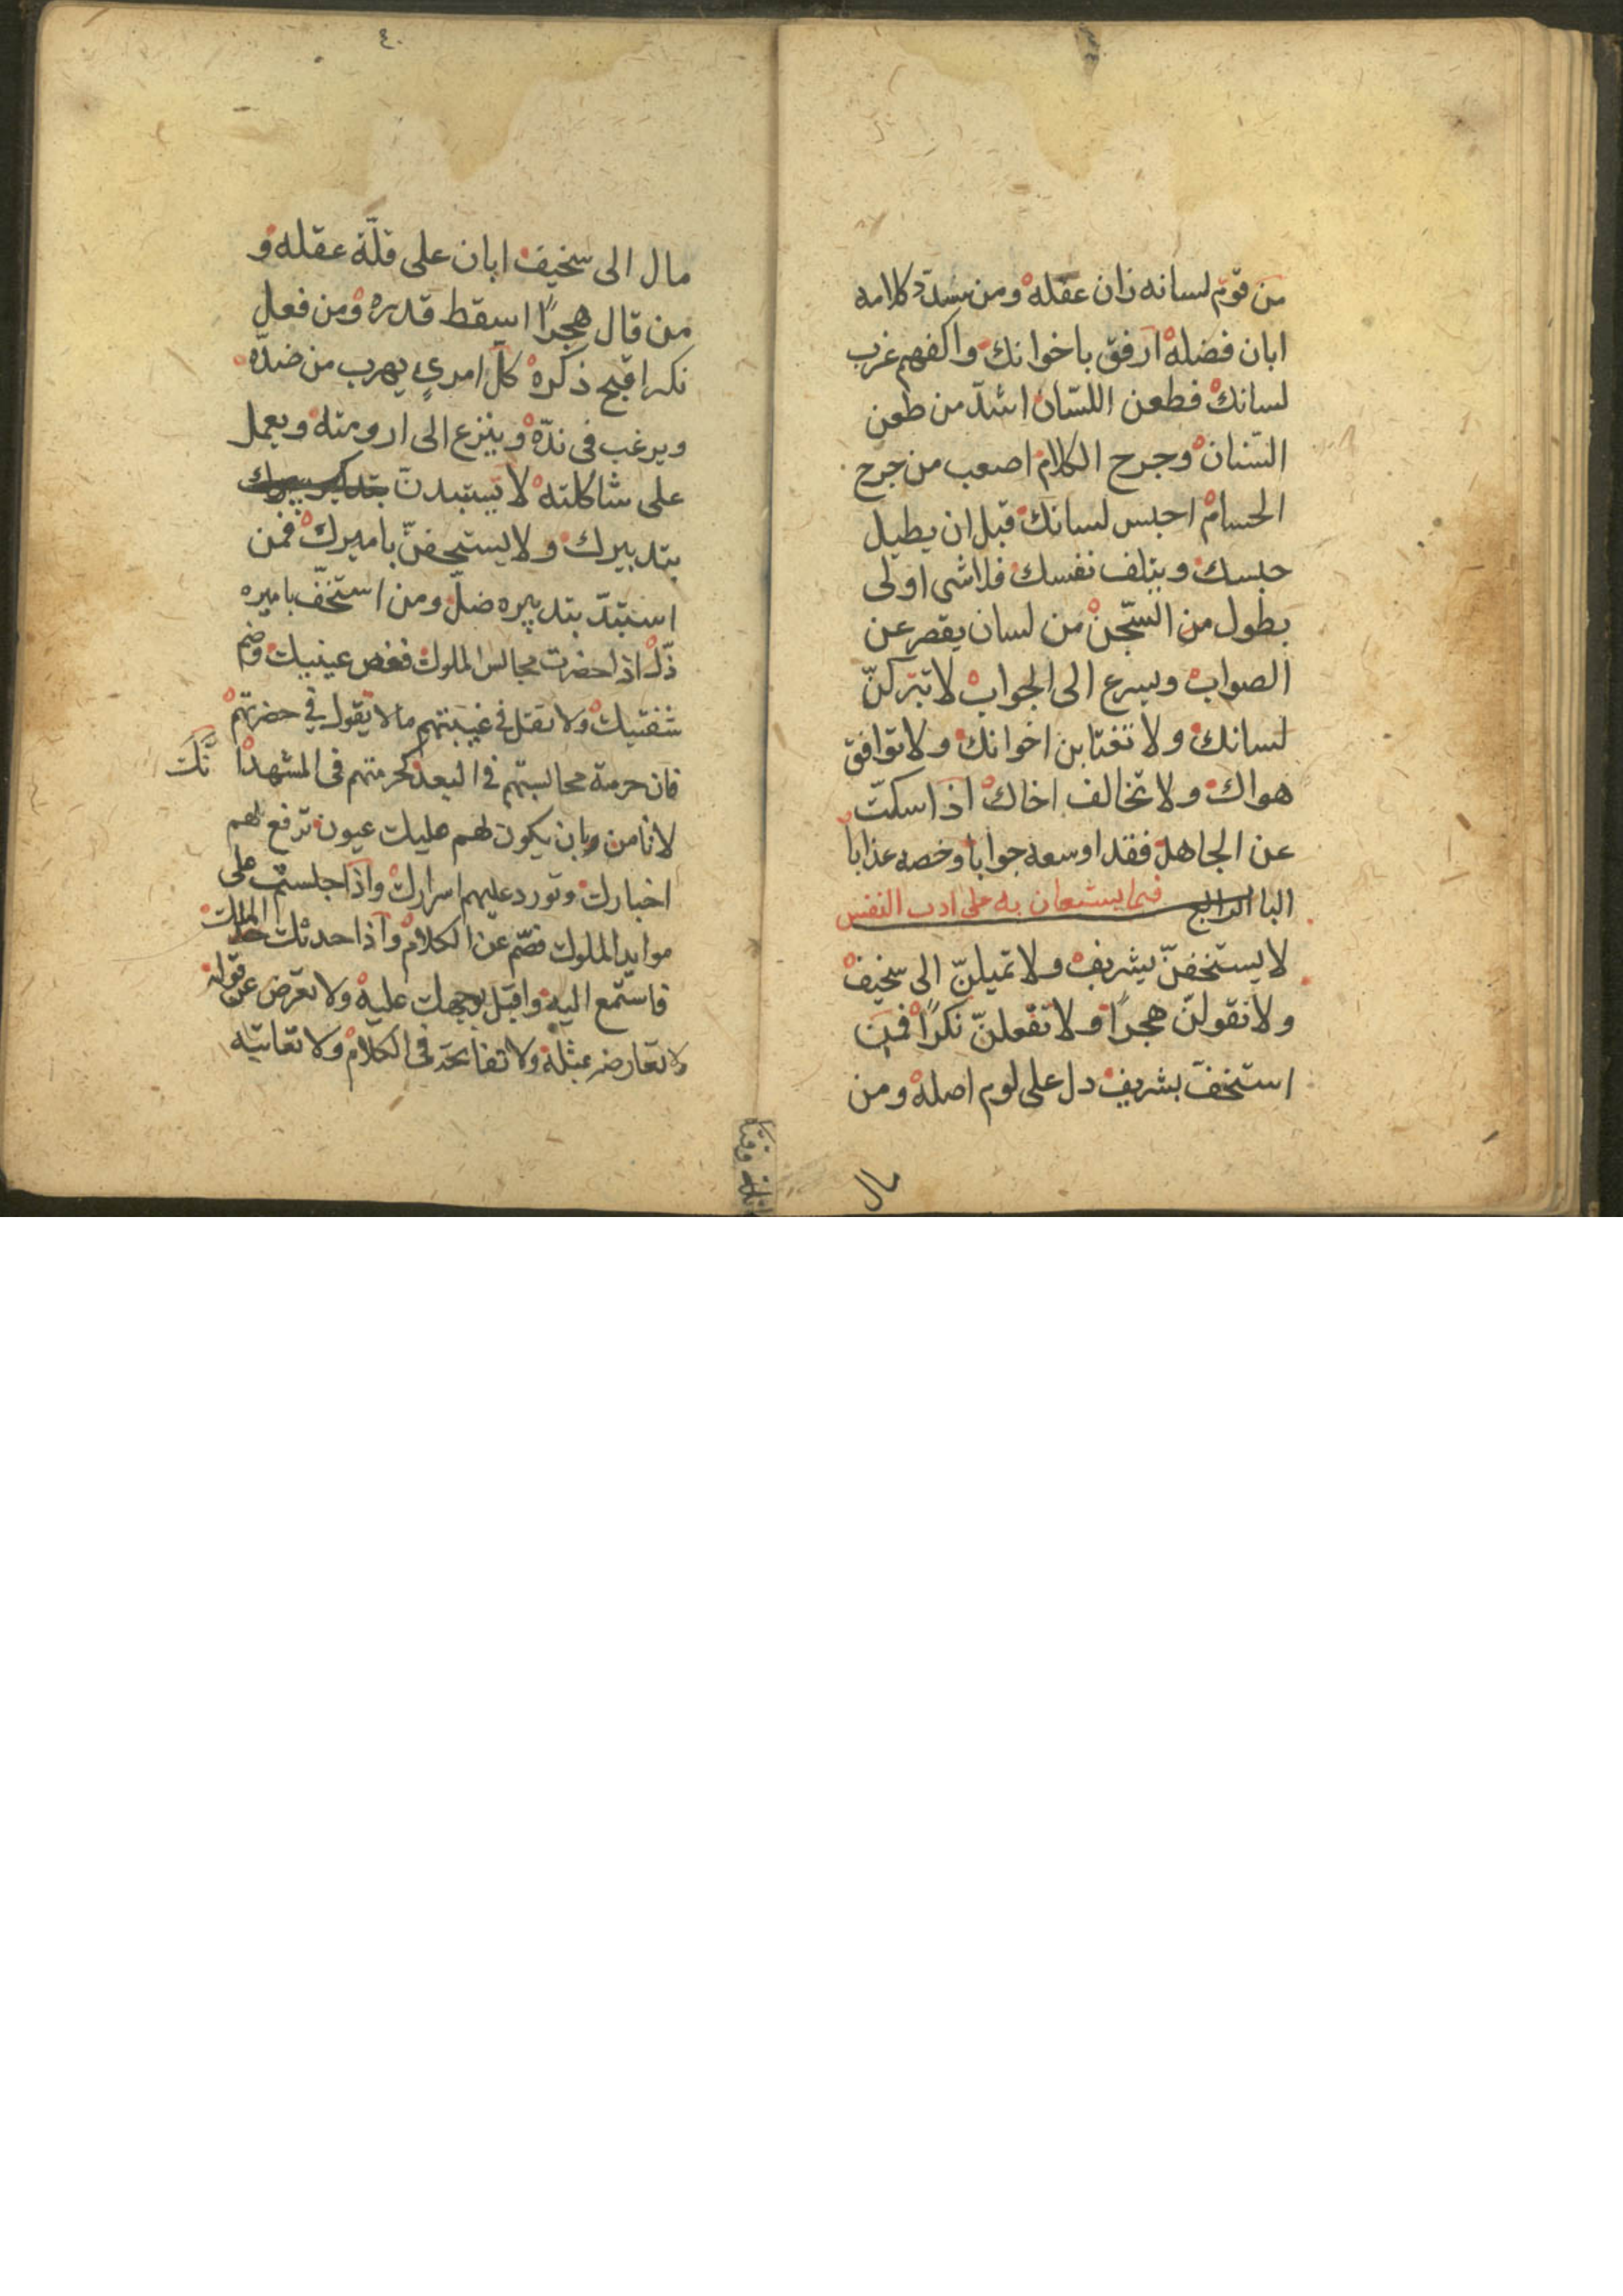 من قوّم لسانه زان عقله ومن سدّد كلامه
ابان فضله ارفق باخوانك واكفهم غرب
لسانك فطعن اللسّان اشدّ من طعن
السّنان وجرح الكلام اصعب من جرح
الحسام احبس لسانك قبل ان يطيل
حبسك ويتلف نفسك فلاشى اولى
بطول من السّجن من لسان يقصر عن
الصواب ويسرع الى الجواب لا تتركنّ
لسانك ولا تغتابن اخوانك ولا توافق
هواك ولا تخالف اخاك اذا سكتّ
عن الجاهل فقد اوسعه جوابا وخصه عذابا
البا الرابع فيما يستعان به على ادب النفس
لا يستخفنّ بشريف ولا تميلنّ الى سخيف
ولا تقولنّ هجرًا ولا تفعلنّ نكرًا فمن
استخفّ بشريف دل على لوم اصله ومن
مال
٤٠
مال الى سخيف ابان على قلّة عقله و
من قال هجرًا اسقط قدره ومن فعل
نكرا قبح ذكره كلّ امرىٍ يهرب من ضدّه
ويرغب فى ندّه وينزع الى ارومته ويعمل
على شاكلته لا يستبدن
بتدبيرك ولا يستخفنّ باميرك فمن
استبدّ بتدبيره ضلّ ومن استخفّ باميره
ذّل اذا حضرت مجالس الملوك فغض عينيك وضم
شفتيك ولا تقل فى غيبتهم ما لا يقول فى حضرتهم
فان حرمة مجالستهم فى البعد كحرمتهم فى المشهد ا نّك
لا تامن وبان يكون لهم عليك عيون ترفع لهم
اخبارك وتورد عليهم اسرارك واذا جلست على
موايد الملوك فصّم عن الكلام واذا حدثك الملك
فاستمع اليه واقبل بوجهك عليه ولا تعرض عن قوله
ولا تعارضه بمثله ولا تفاتحه فى الكلام ولا تعاتبه